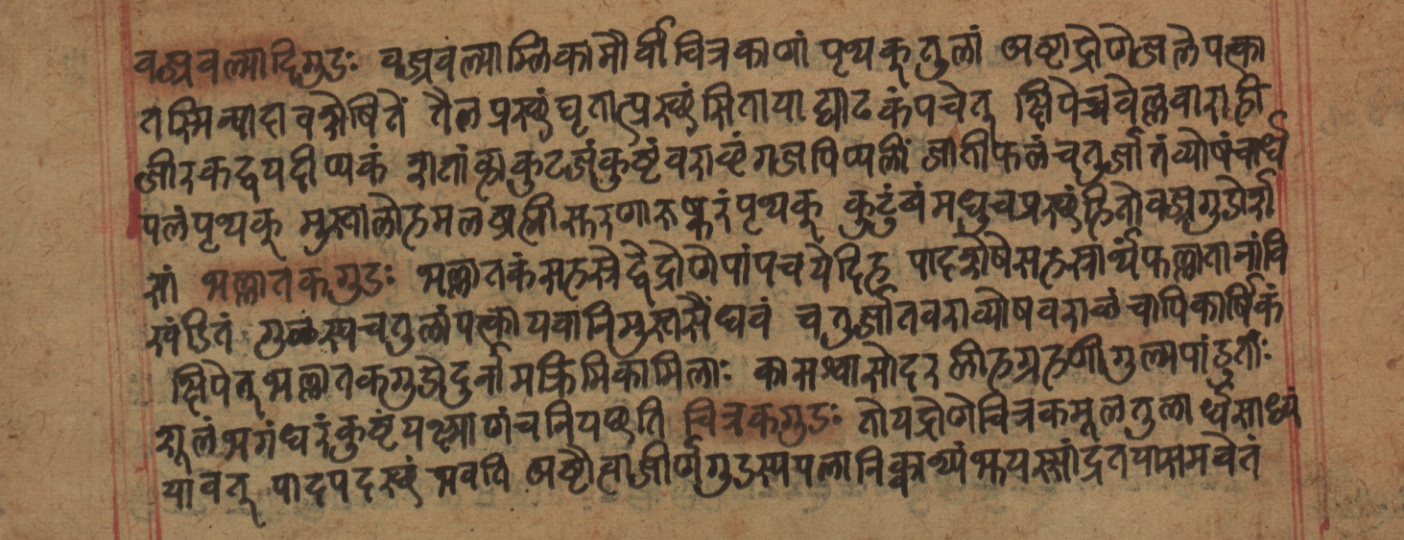 वज्रवल्यादिगुडः वज्रवल्यास्लिकामौर्वीचित्रकाणां पृथक्तुलां अष्टद्रोणेजलेपत्का
तस्मिन्पादावशेषितें तैलप्रस्थंघृतात्प्रस्थंसितायाद्व्याढकंपचेत् क्षिपेच्चवेल्लवाराही
जीरकद्वयदीप्यकं शतांव्हाकुटजंकुष्टंवराव्हंगजपिप्पलीं जातीफलंचतुर्जातंव्योषंचार्ध
पलंपृथक् मुस्तालोहमलंब्राह्मीसूरणारूष्करंपृथक् कुटुंबंमधुचप्रस्थंहितोवज्रगुडोर्श
सां भल्लातकगुडः भल्लातकंसहस्रैद्वेद्रोणेपांपचयेदिह पादशेषेसहस्रार्थफल्लातानांवि
खंडितं गुळस्यचतुलांपत्कायवानिमुस्तसैंधवं चतुर्जातवराव्योषवराळंचापिकार्षिकं
क्षिपेत्भल्लातकगुडोदुर्नामक्रिमिकामिलाः कासश्वासोदरप्लीहग्रहणीगुल्मपांडुतीः
शूलंभगंधरंकुष्टंयक्ष्माणंचनियछति चित्रकगुडः तोयद्रोणेचित्रकमूलतुलार्धंसाध्यं
यावत् पादपदस्थं भवति अष्टौत्वाजीर्णगुडस्यपलानिक्वाथ्यंभूयस्सांद्रतयासमवेतं